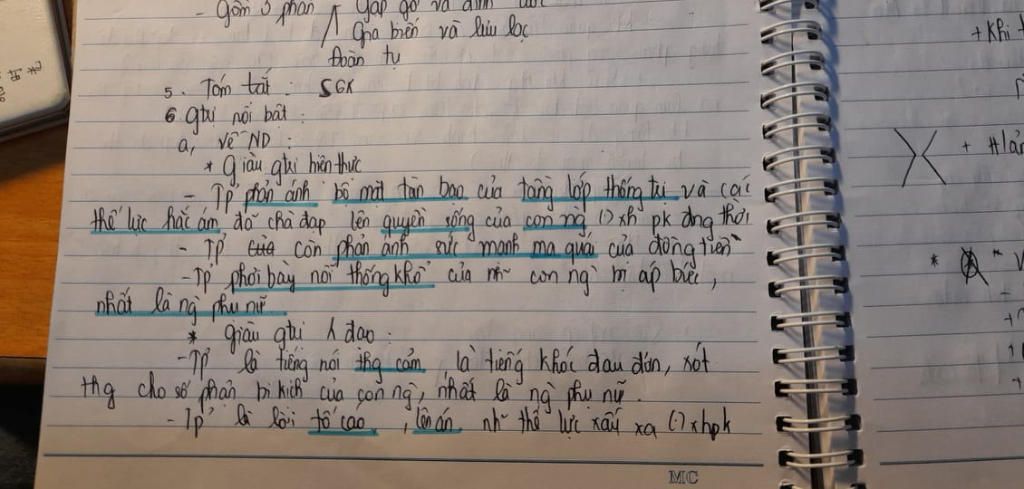 - Gồm 3 phần Gặp gỡ và đính ước
Gia biến và lưu lạc
Đoàn tụ
5. Tóm tắt : SGK
6 gtrị nổi bật :
a, Về ND :
* Giàu gtrị hiện thực
- Tp phản ánh bộ mặt tàn bạo của tầng lớp thống trị và các
thế lực hắc ám đã chà đạp lên quyền sống của con ng (:) xh pk đng thời
- TP còn phản ánh sức mạnh ma quái của đồng tiền
- TP phơi bày nỗi thống khổ của nh~ con ng` bị áp bức,
nhất là ng` phụ nữ
* Giàu gtrị λ đạo :
- TP là tiếng nói thg cảm, là tiếng khóc đau đớn, xót
thg cho số phận bi kịch của con ng`, nhất là ng` phụ nữ.
- TP là lời tố cáo, lên án nh~ thế lực xấu xa (:) xhpk
MC
+ Khi
+
*